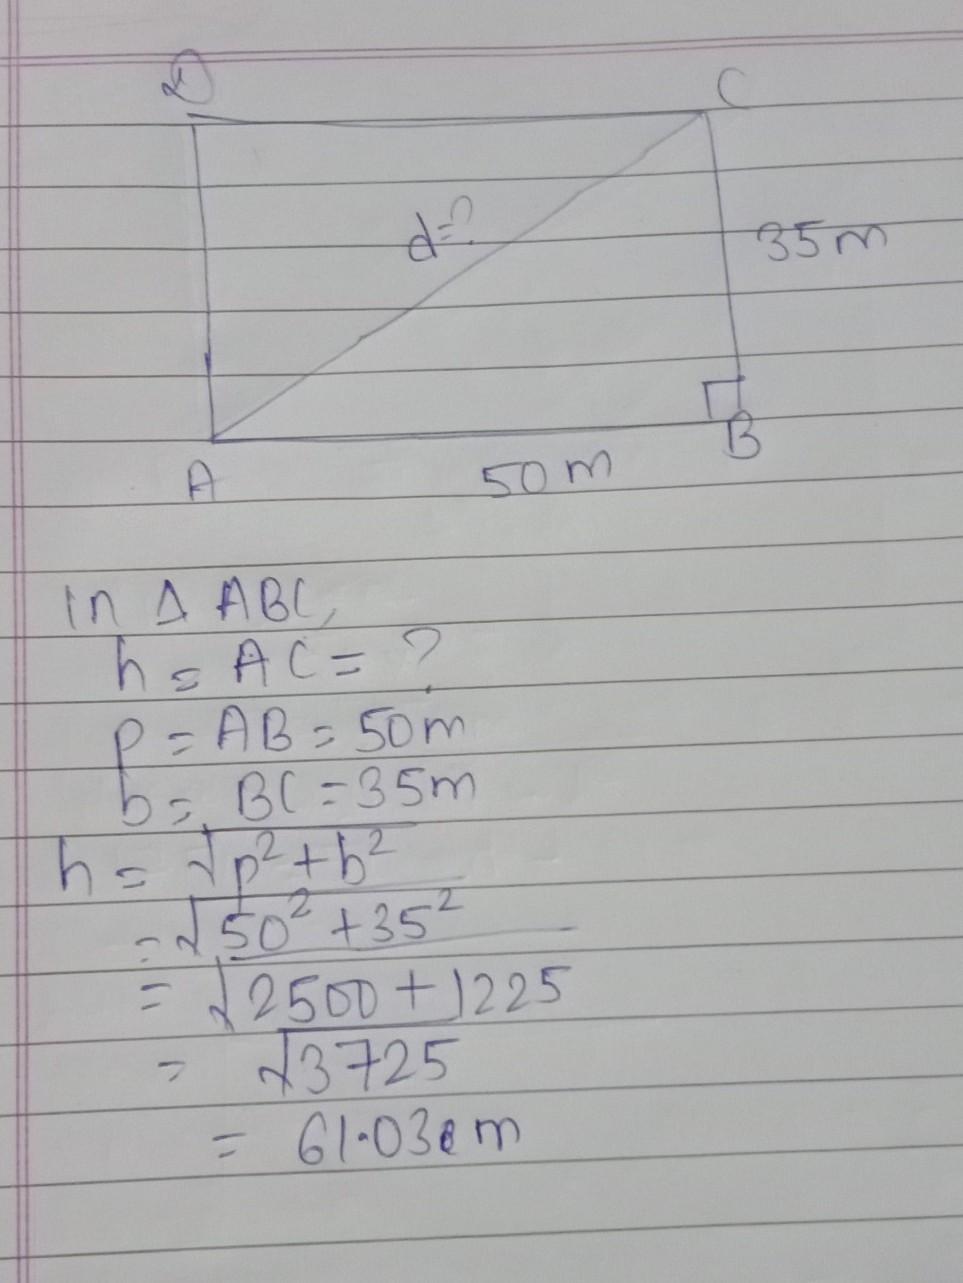 D
C
d=?
35m
A
50m
B
In Δ ABC,
h = AC = ?
p = AB = 50m
b = BC = 35m
h = √p²+b²
= √50²+35²
= √2500+1225
= √3725
= 61.03 m